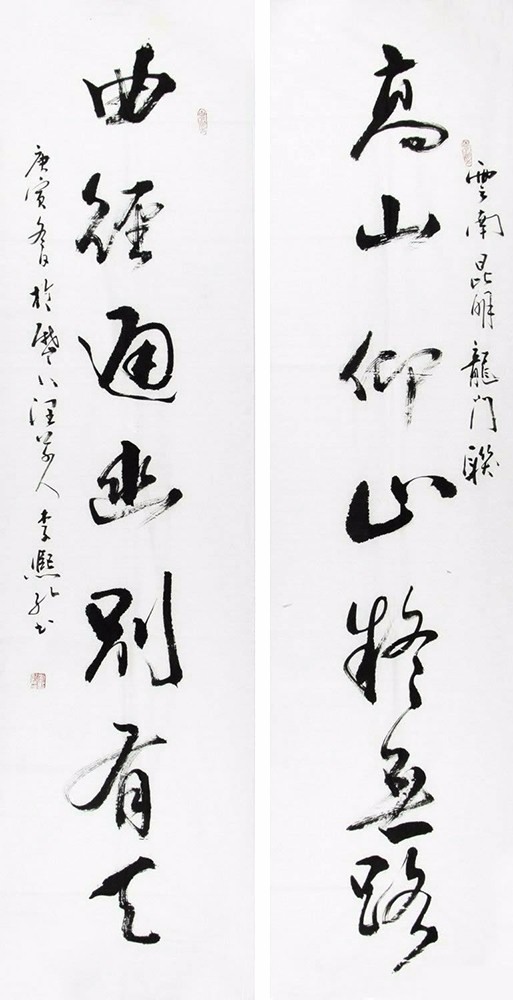 雲南昆明龍門聯
高山仰止疑無路
曲徑通幽別有天
庚寅冬日於歷下人李熙書